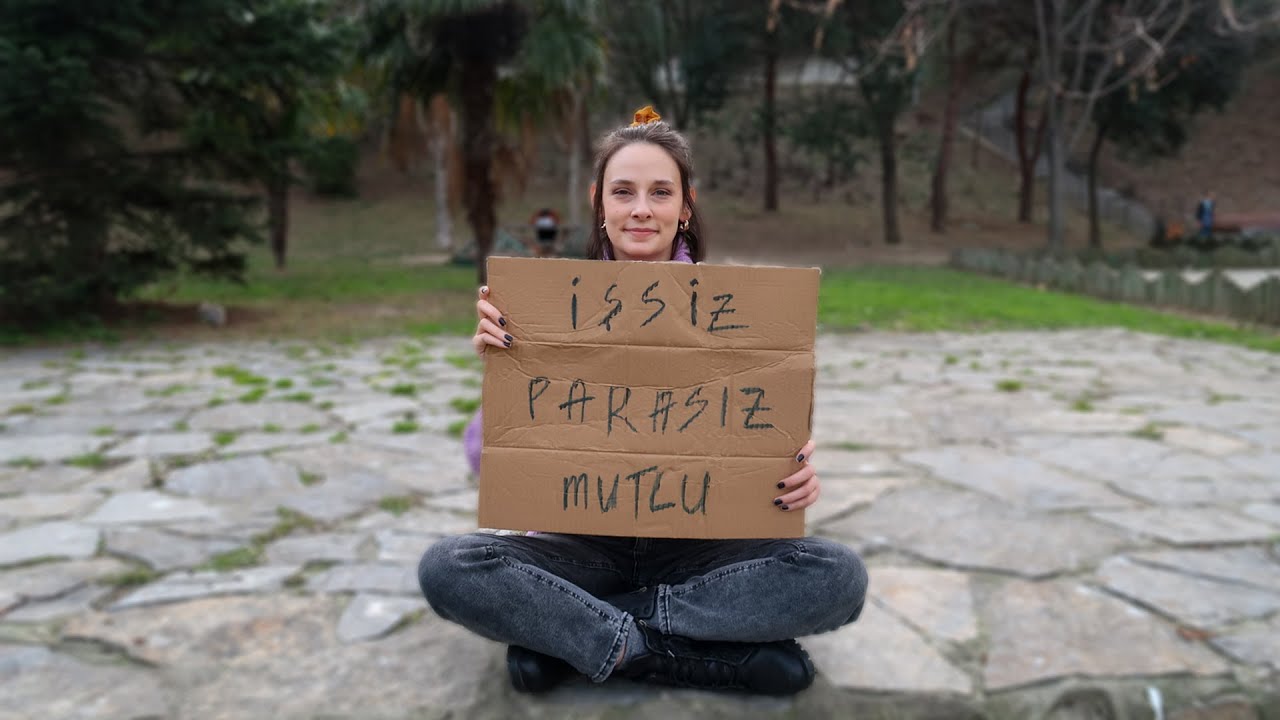 işsiz
PARASIZ
MUTLU